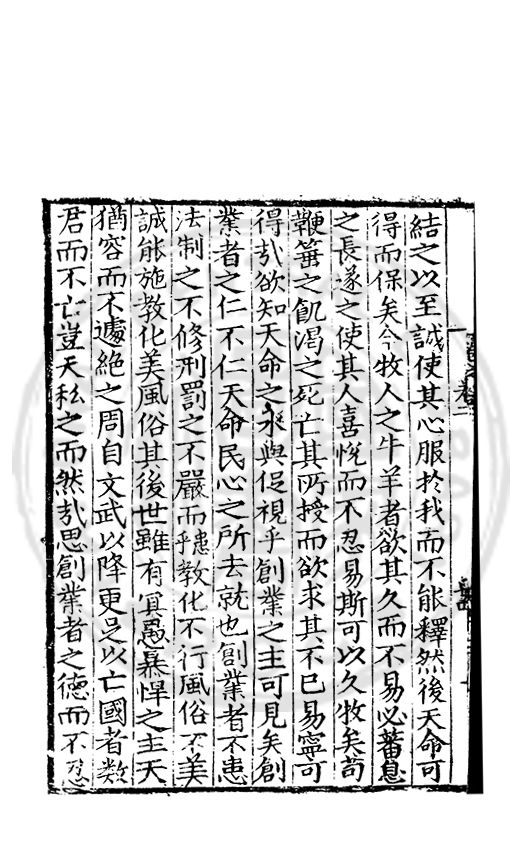 結之以至誠使其心服於我而不能釋然後天命可
得而保矣今牧人之牛羊者欲其久而不易必蕃息
之長遂之使其人喜悅而不忍易斯可以久牧矣苟
鞭箠之飢渴之死亡其所授而欲求其不已易寧可
得㢤欲知天命之永與促視乎創業之主可見矣創
業者之仁不仁天命民心之所去就也創業者不患
法制之不修刑罰之不嚴而患乎教化不行風俗不美
誠能施教化美風俗其後世雖有冥愚暴悍之主天
猶容而不遽絕之周自文武以降更足以亡國者數
君而不亡豈天私之而然㢤思創業者之德而不忍
卷二